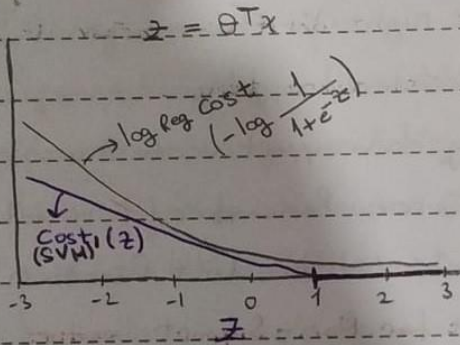 z = θᵀx
log Reg cost (-log 1/(1+e⁻ᶻ))
Cost₁(z)
(SVM)
-3 -2 -1 0 1 2 3
Z